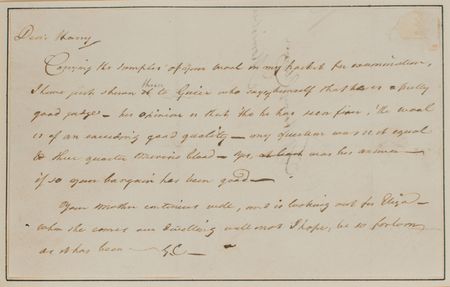 Dear Harry
Carrying the samples of your wool in my pocket for examination,
I have just shown them to Grier who says himself that he is a pretty
good judge – his opinion is that tho' he has seen finer, the wool
is of an exceeding good quality – my question was is it equal
to three quarter Merino blood – yes, at least was his answer –
if so your bargain has been good –
Your Mother continues well, and is looking out for Eliza –
when she comes our dwelling will not I hope, be so forlorn
as it has been –